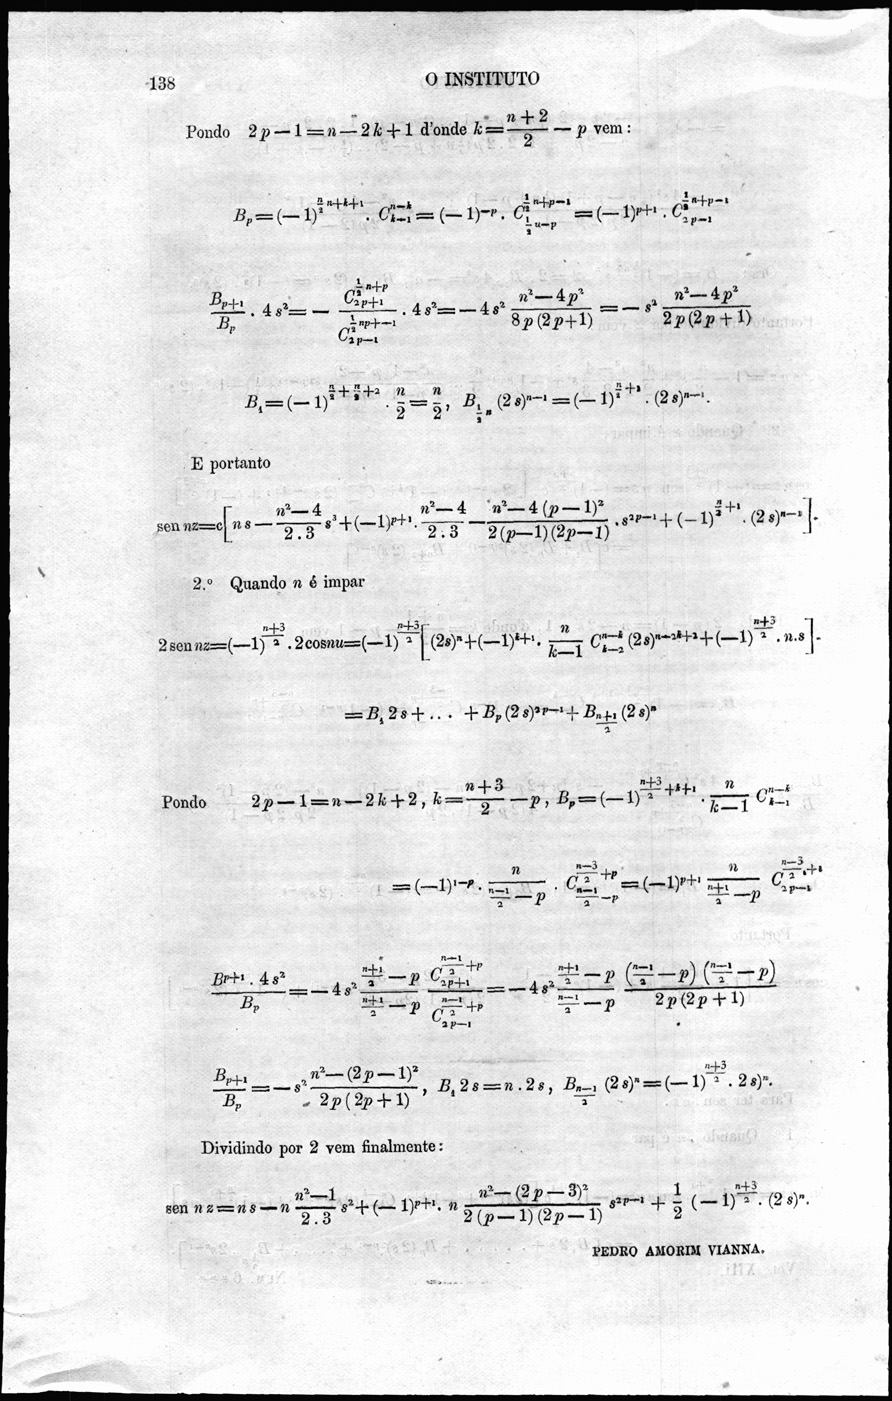 138 O INSTITUTO
Pondo 2p — 1 = n — 2k + 1 d'onde k = (n + 2)/2 — p vem:
B_p = (— 1)^{n/2 n+k+1} . C_{k—1}^{n—k} = (— 1)^{—p} . C_{1/2 u—p}^{1/2 n+p—1} = (— 1)^{p+1} . C_{2p—1}^{1/2 n+p—1}
B_{p+1}/B_p . 4s² = — C_{2p+1}^{1/2 n+p}/C_{2p—1}^{1/2 np+—1} . 4s² = — 4s² (n² — 4p²)/(8p(2p+1)) = — s² (n² — 4p²)/(2p(2p + 1))
B_1 = (— 1)^{n/2 + n/2 + 2} . n/2 = n/2, B_{1/2 n} (2s)^{n—1} = (— 1)^{n/2 + 1} . (2s)^{n—1}.
E portanto
sen nz = c[ns — (n² — 4)/(2.3) s³ + (—1)^{p+1} . (n² — 4)/(2.3) — (n² — 4(p — 1)²)/(2(p—1)(2p—1)) . s^{2p—1} + (—1)^{n/2 + 1} . (2s)^{n—1}].
2.º Quando n é impar
2 sen nz = (—1)^{(n+3)/2} . 2 cos nu = (—1)^{(n+3)/2} [(2s)^n + (—1)^{k+1} . n/(k—1) C_{k—2}^{n—k} (2s)^{n—2k+2} + (—1)^{(n+3)/2} . n.s].
= B_1 2s + ... + B_p (2s)^{2p—1} + B_{(n+1)/2} (2s)^n
Pondo 2p — 1 = n — 2k + 2, k = (n + 3)/2 — p, B_p = (— 1)^{(n+3)/2 + k+1} . n/(k—1) C_{k—1}^{n—k}
= (—1)^{1—p} . n/((n—1)/2 — p) . C_{(n—1)/2 —p}^{(n—3)/2 +p} = (—1)^{p+1} n/((n+1)/2 — p) C_{2p—1}^{(n—3)/2 .+1}
B^{p+1} . 4s²/B_p = — 4s² ((n+1)/2 — p)/((n+1)/2 — p) C_{2p+1}^{(n—1)/2 +p}/C_{2p—1}^{(n—1)/2 +p} = — 4s² ((n+1)/2 — p)/((n—1)/2 — p) ((n—1)/2 — p)((n—1)/2 — p)/(2p(2p + 1))
B_{p+1}/B_p = — s² (n² — (2p — 1)²)/(2p(2p + 1)), B_1 2s = n . 2s, B_{(n—1)/2} (2s)^n = (— 1)^{(n+3)/2} . 2s)^n.
Dividindo por 2 vem finalmente:
sen nz = ns — n (n²—1)/(2.3) s² + (— 1)^{p+1} . n (n² — (2p — 3)²)/(2(p — 1)(2p — 1)) s^{2p—1} + 1/2 (— 1)^{(n+3)/2} . (2s)^n.
PEDRO AMORIM VIANNA.